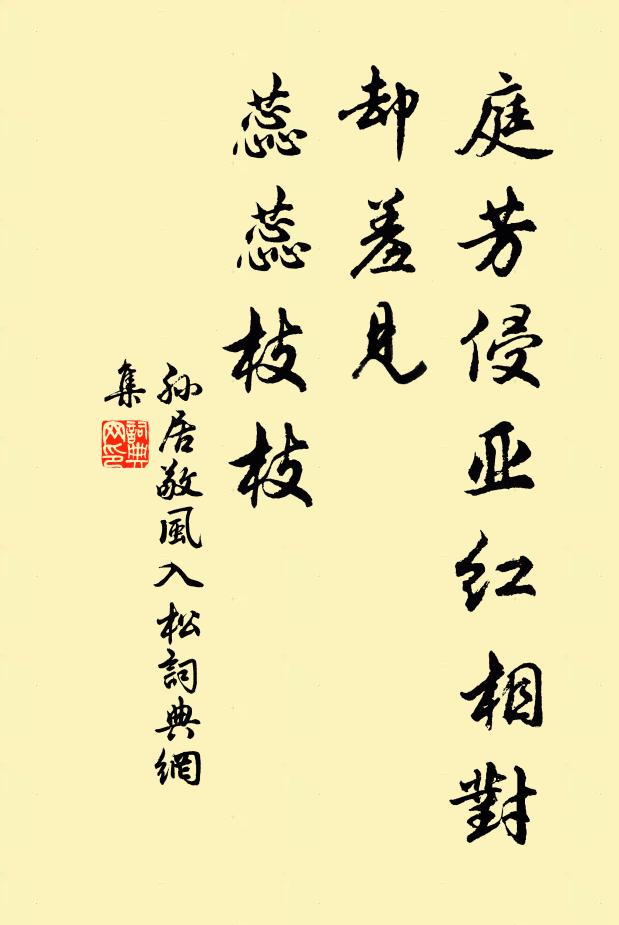 庭芳侵亚红相對
却羞見
蕊蕊枝枝
孫居敬風入松詞典網
集
詞典
网印